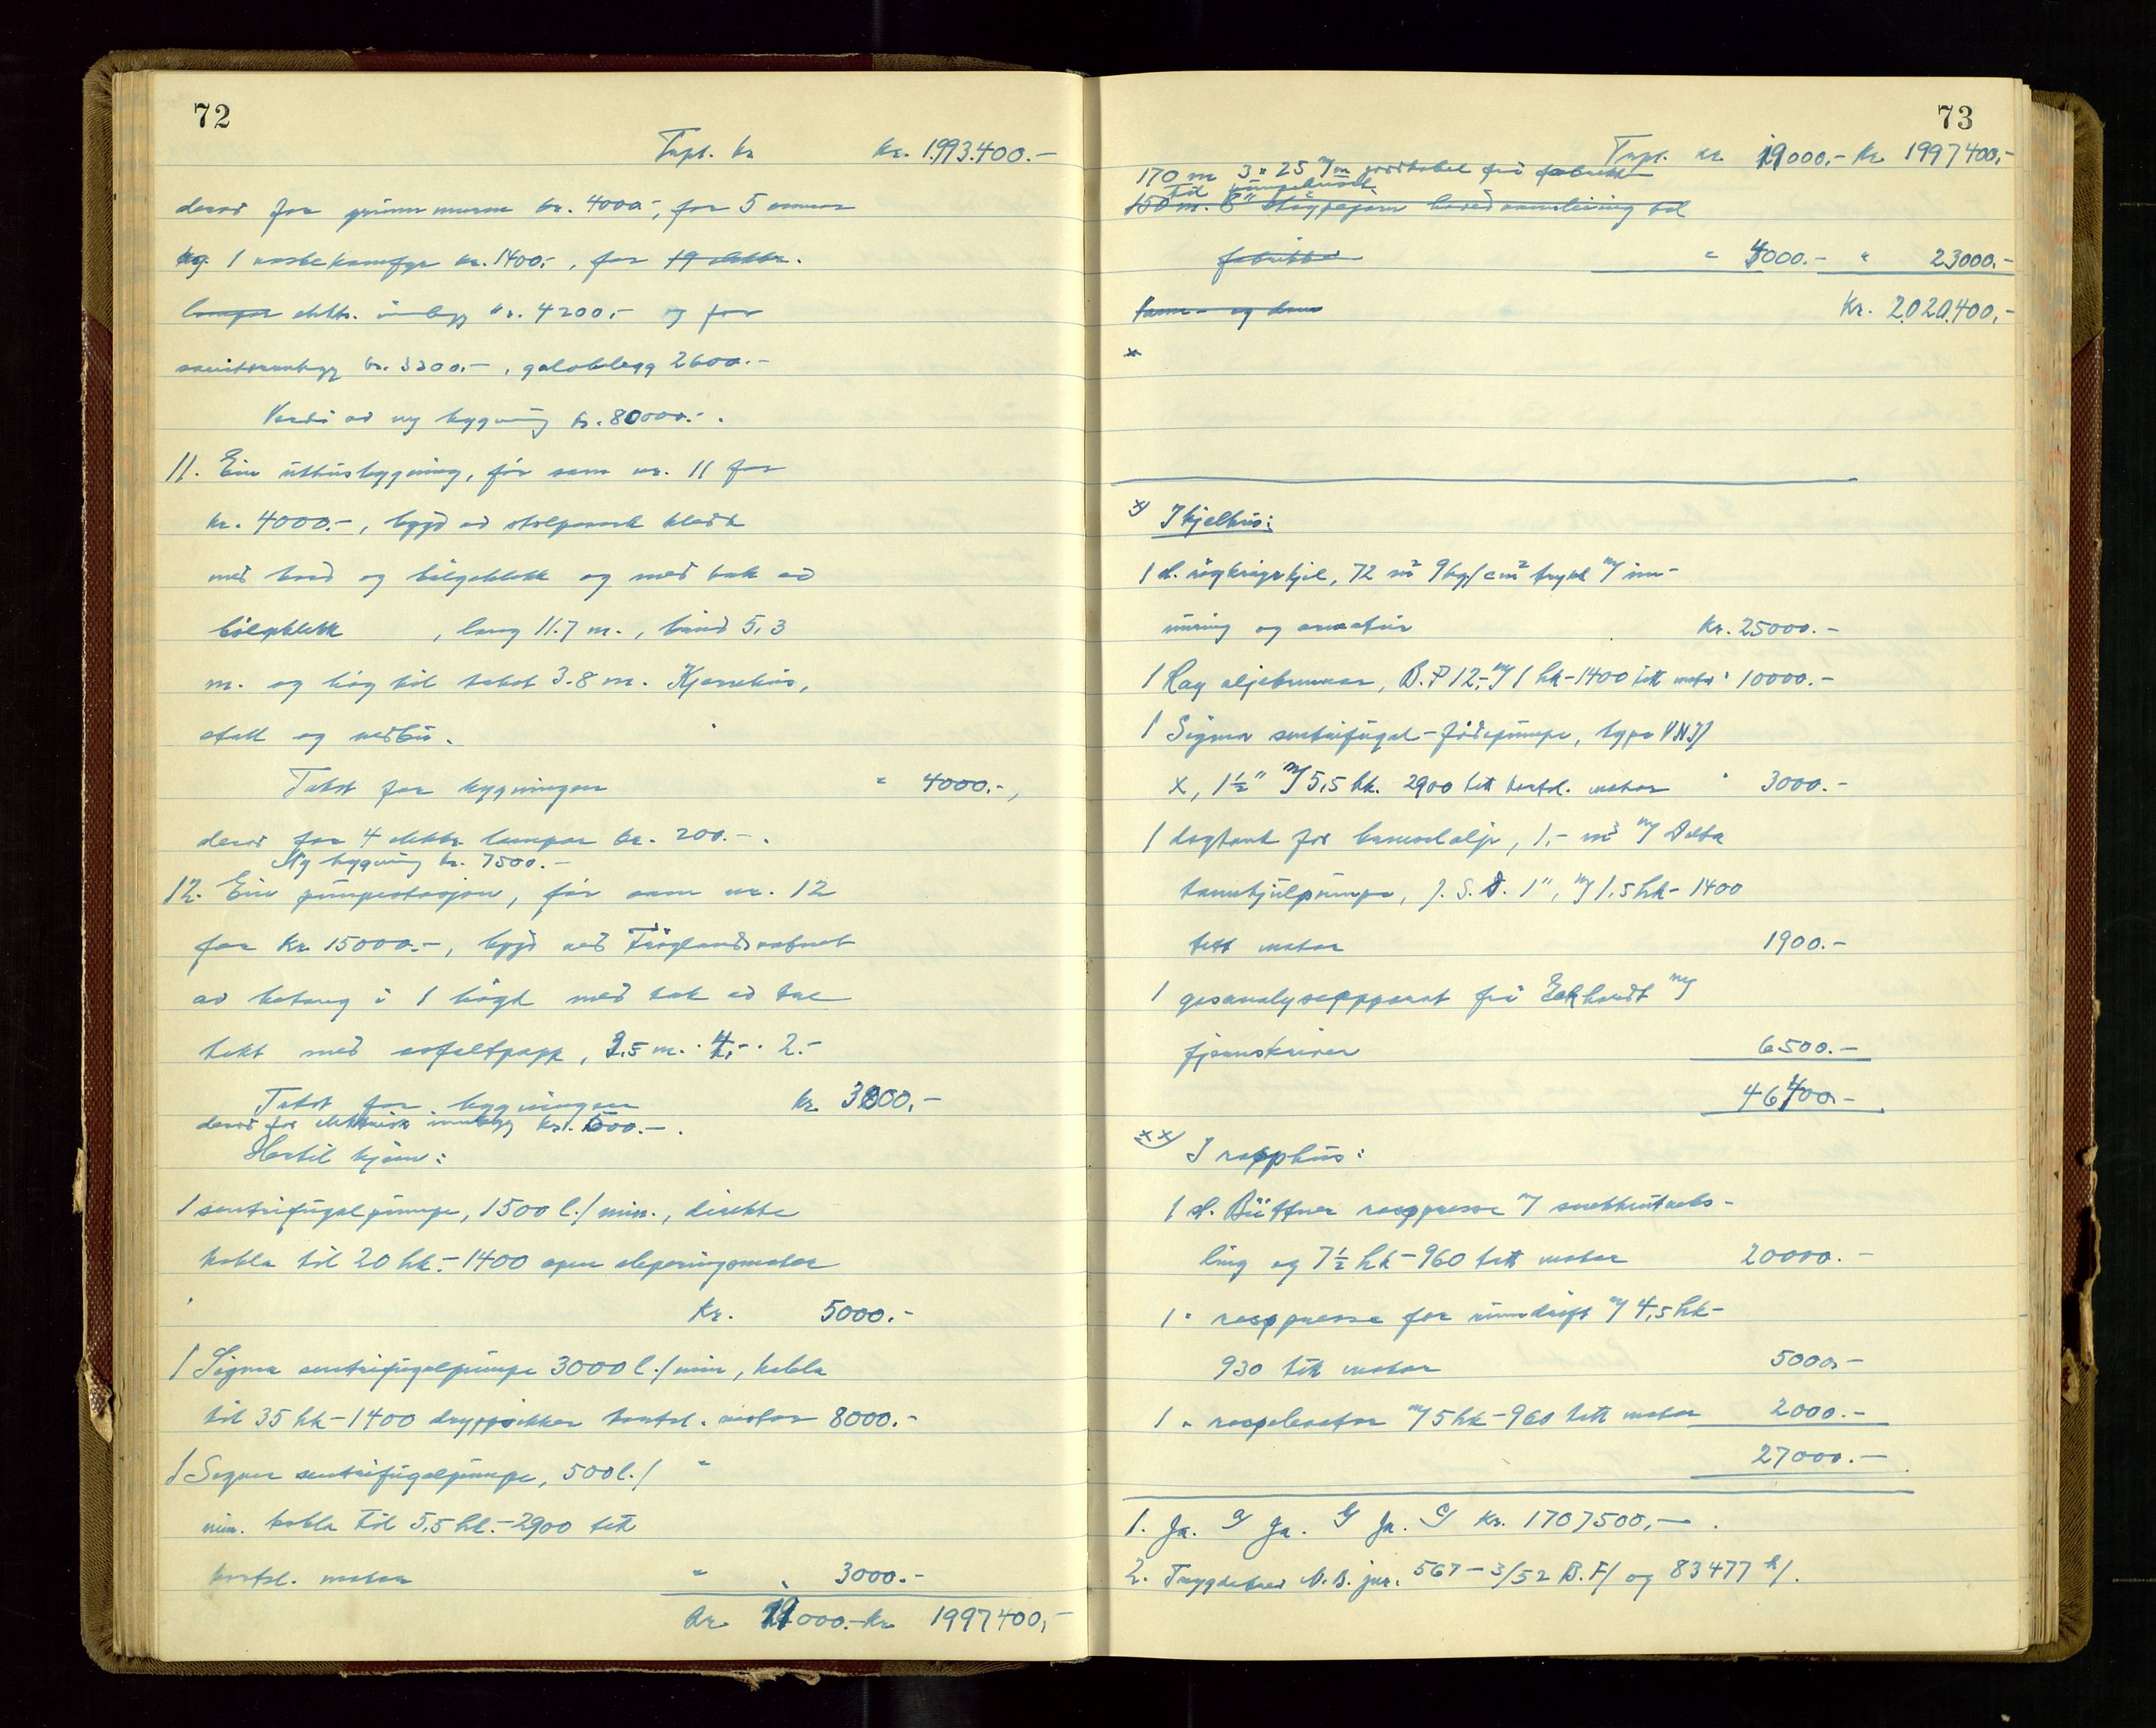 72
Trspt. kr kr. 1.993.400.-
derav for grunnmuren kr. 4000.-, for 5 omnar
og 1 vaskekomfyr kr. 1400.-, for 19 elektr.
lampar elektr. innlegg kr. 4200.- og for
sanitæranlegg kr. 3200.-, golvbelegg 2600.-
Verdi av ny bygning kr. 80000.-.
11. Ein uthusbygning, før som nr. 11 for
kr. 4000.-, bygd av stolpeverk kledt
med bord og bølgeblekk og med tak av
bølgeblekk, lang 11.7 m., breid 5,3
m. og høg til taket 3.8 m. Kjørehus,
stall og vedbu.
Takst for bygningen " 4000.-,
derav for 4 elektr. lampar kr. 200.-.
Ny bygning kr. 7500.-
12. Ein pumpestasjon, før som nr. 12
for kr 15000.-, bygd ved Frøylandsvatnet
av betong i 1 høgd med tak av tre
tekt med asfaltpapp, 3,5 m. · 4,- · 2.-
Takst for bygningen kr. 3800,-
derav for elektrisk innlegg kr. 600.-.
Hertil kjem:
1 sentrifugalpumpe, 1500 l./min., direkte
kobla til 20 hk.-1400 open sleperingsmotor
kr. 5000.-
1 Sigma sentrifugalpumpe 3000 l./min, kobla
til 35 hk-1400 dryppsikker kortsl. motor 8000.-
1 Sigma sentrifugalpumpe, 500 l./ "
min. kobla til 5,5 hk.-2900 tett
kortsl. motor " 3000.-
kr. 19000.- kr 1997400,-
73
Trspt. kr. 19000.- kr. 1997400,-
170 m 3 x 25 m/m jordkabel frå fabrikk
til pumpehuset
150 m. 8" støypejarn hovedvannledning til
fabrikken " 4000.- " 23000.-
kr. 2.020.400,-
x
x) I kjelhus:
1 st. røykrørskjel, 72 m² 9 kg/cm² trykk m/ inn-
muring og armatur kr. 25000.-
1 Ray oljebrennar, B.P 12,- m/ 1 hk-1400 tett motor " 10000.-
1 Sigma sentrifugal-fødepumpe, type VN II
x, 1½" m/ 5,5 hk. 2900 tett kortsl. motor " 3000.-
1 dagtank for brenselolje, 1,- m³ m/ Delta
tannhjulpumpe, J.S.D. 1", m/ 1,5 hk-1400
tett motor 1900.-
1 gasanalyseapparat frå Eckhardt m/
fjernskriver 6500.-
46400.-
xx) I rasphus:
1 st. Büttner rasppresse m/ snekkeutveks-
ling og 7½ hk-960 tett motor 20000.-
1 " rasppresse for remdrift m/ 4,5 hk-
930 tett motor 5000.-
1 " raspelevator m/ 5 hk-960 tett motor 2000.-
27000.-
1. Ja. 2/ Ja. 3/ Ja. 4/ kr. 1707500,-.
2. Trygdebrev N.B. jnr. 567-3/52 B.F/ og 83477 h/.